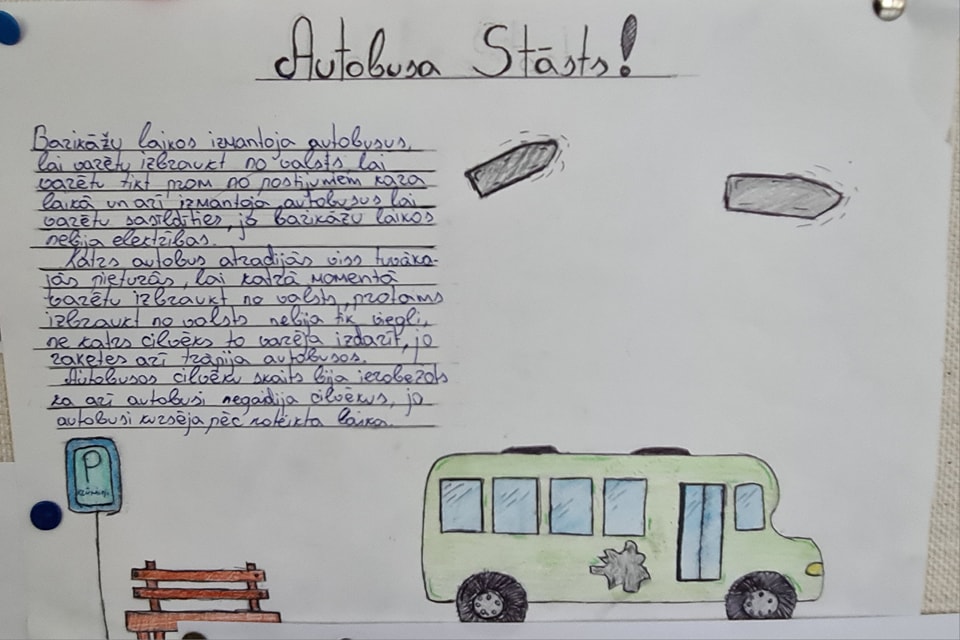 Autobusa Stāsts!
Barikāžu laikos izmantoja autobusus,
lai varētu izbraukt no valsts, lai
varētu tikt prom no postījumiem kara
laikā un arī izmantoja autobusus lai
varētu sasildīties, jo barikāžu laikos
nebija elektrības.
Katrs autobus atradījās viss tuvāka-
jās pieturās, lai katrā momentā
varētu izbraukt no valsts, protams
izbraukt no valsts nebija tik viegli,
ne katrs cilvēks to varēja izdarīt, jo
raķetes arī trāpija autobusos.
Autobusos cilvēku skaits bija ierobežots
kā arī autobusi negaidija cilvēkus, jo
autobusi kursēja pēc noteikta laika.
P